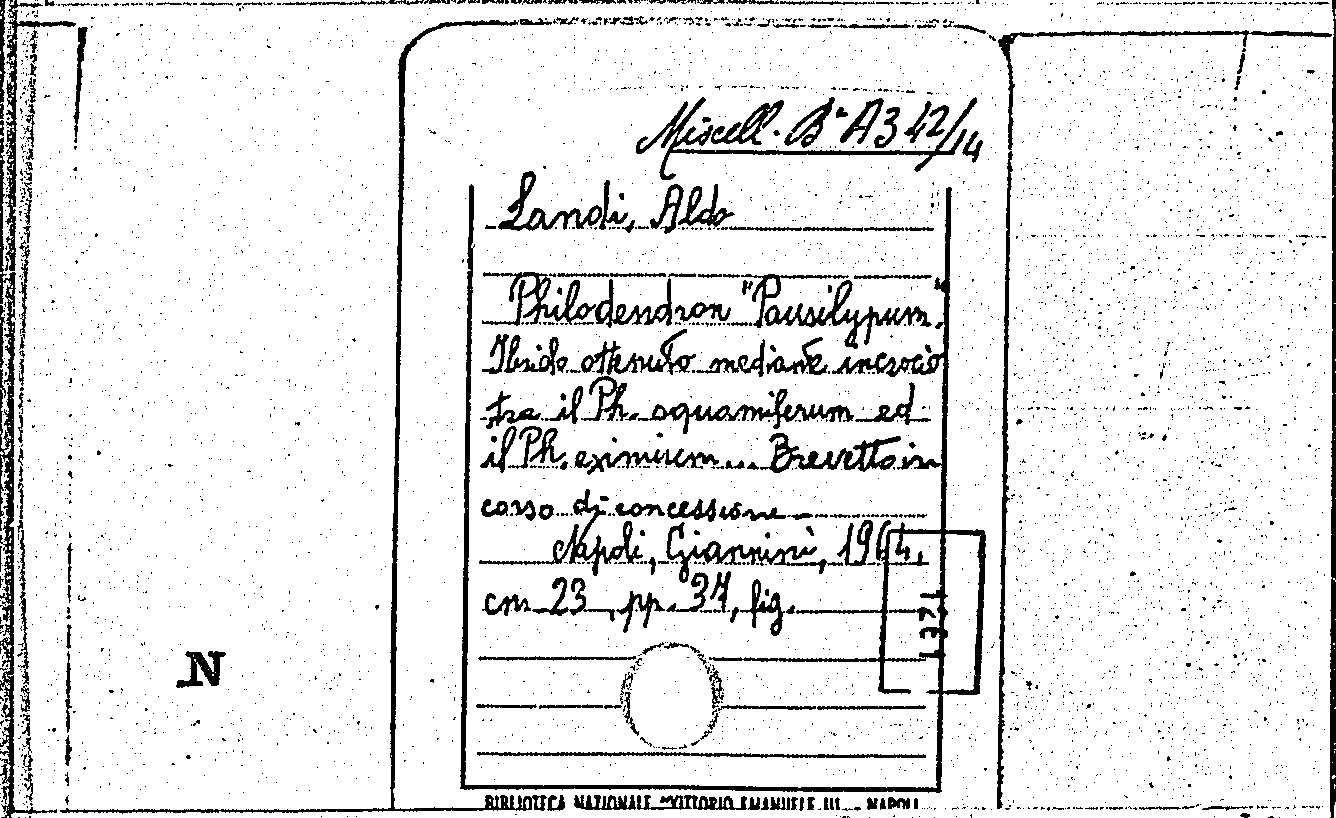 Miscell. Bª A342/14
Landi, Aldo
Philodendron "Pausilypum".
Ibrido ottenuto mediante incrocio
tra il Ph. squamiferum ed
il Ph. eximium... Brevetto in
corso di concessione
Napoli, Giannini, 1964.
cm 23, pp. 37, fig.
N
BIBLIOTECA NAZIONALE "VITTORIO EMANUELE III" - NAPOLI